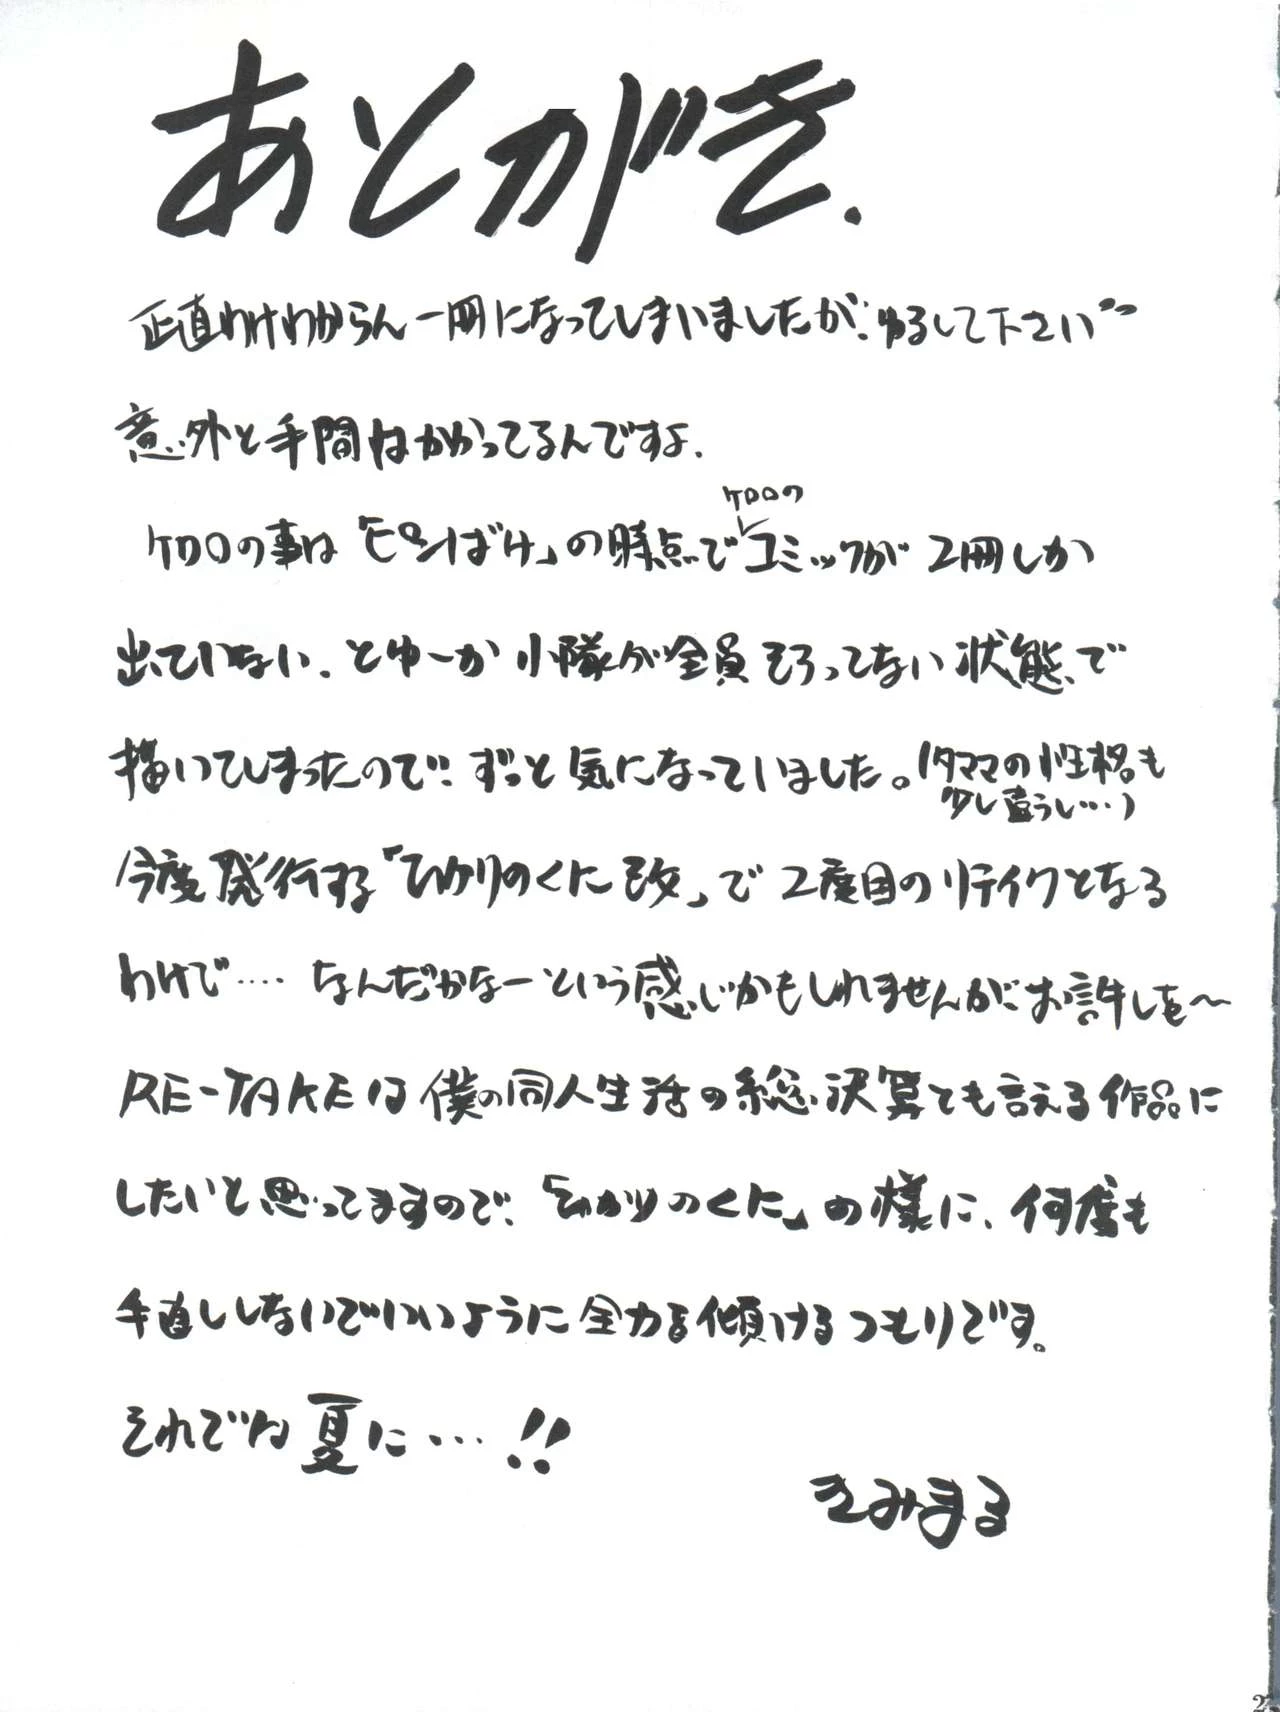 あとがき.
正直わけわからん一冊になってしまいましたが、ゆるして下さい
意外と手間はかかってるんですよ.
ケロロの事は「ピンばけ」の時点でケロロのコミックが2冊しか
出ていない.とゆーか小隊が全員そろってない状態で
描いてしまったので、ずっと気になっていました。(タママの性格も
少し違うし…)
今度発行する「ひかりのくに改」で2度目のリテイクとなる
わけで‥‥なんだかなーという感じかもしれませんが、お許しを〜
RE-TAKEは僕の同人生活の総決算とも言える作品に
したいと思ってますので、「ひかりのくに」の様に、何度も
手直ししないでいいように全力を傾けるつもりです。
それでは夏に…!!
きみまる
2